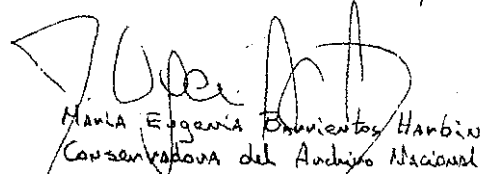 María Eugenia Barrientos Harbin
Conservadora del Archivo Nacional